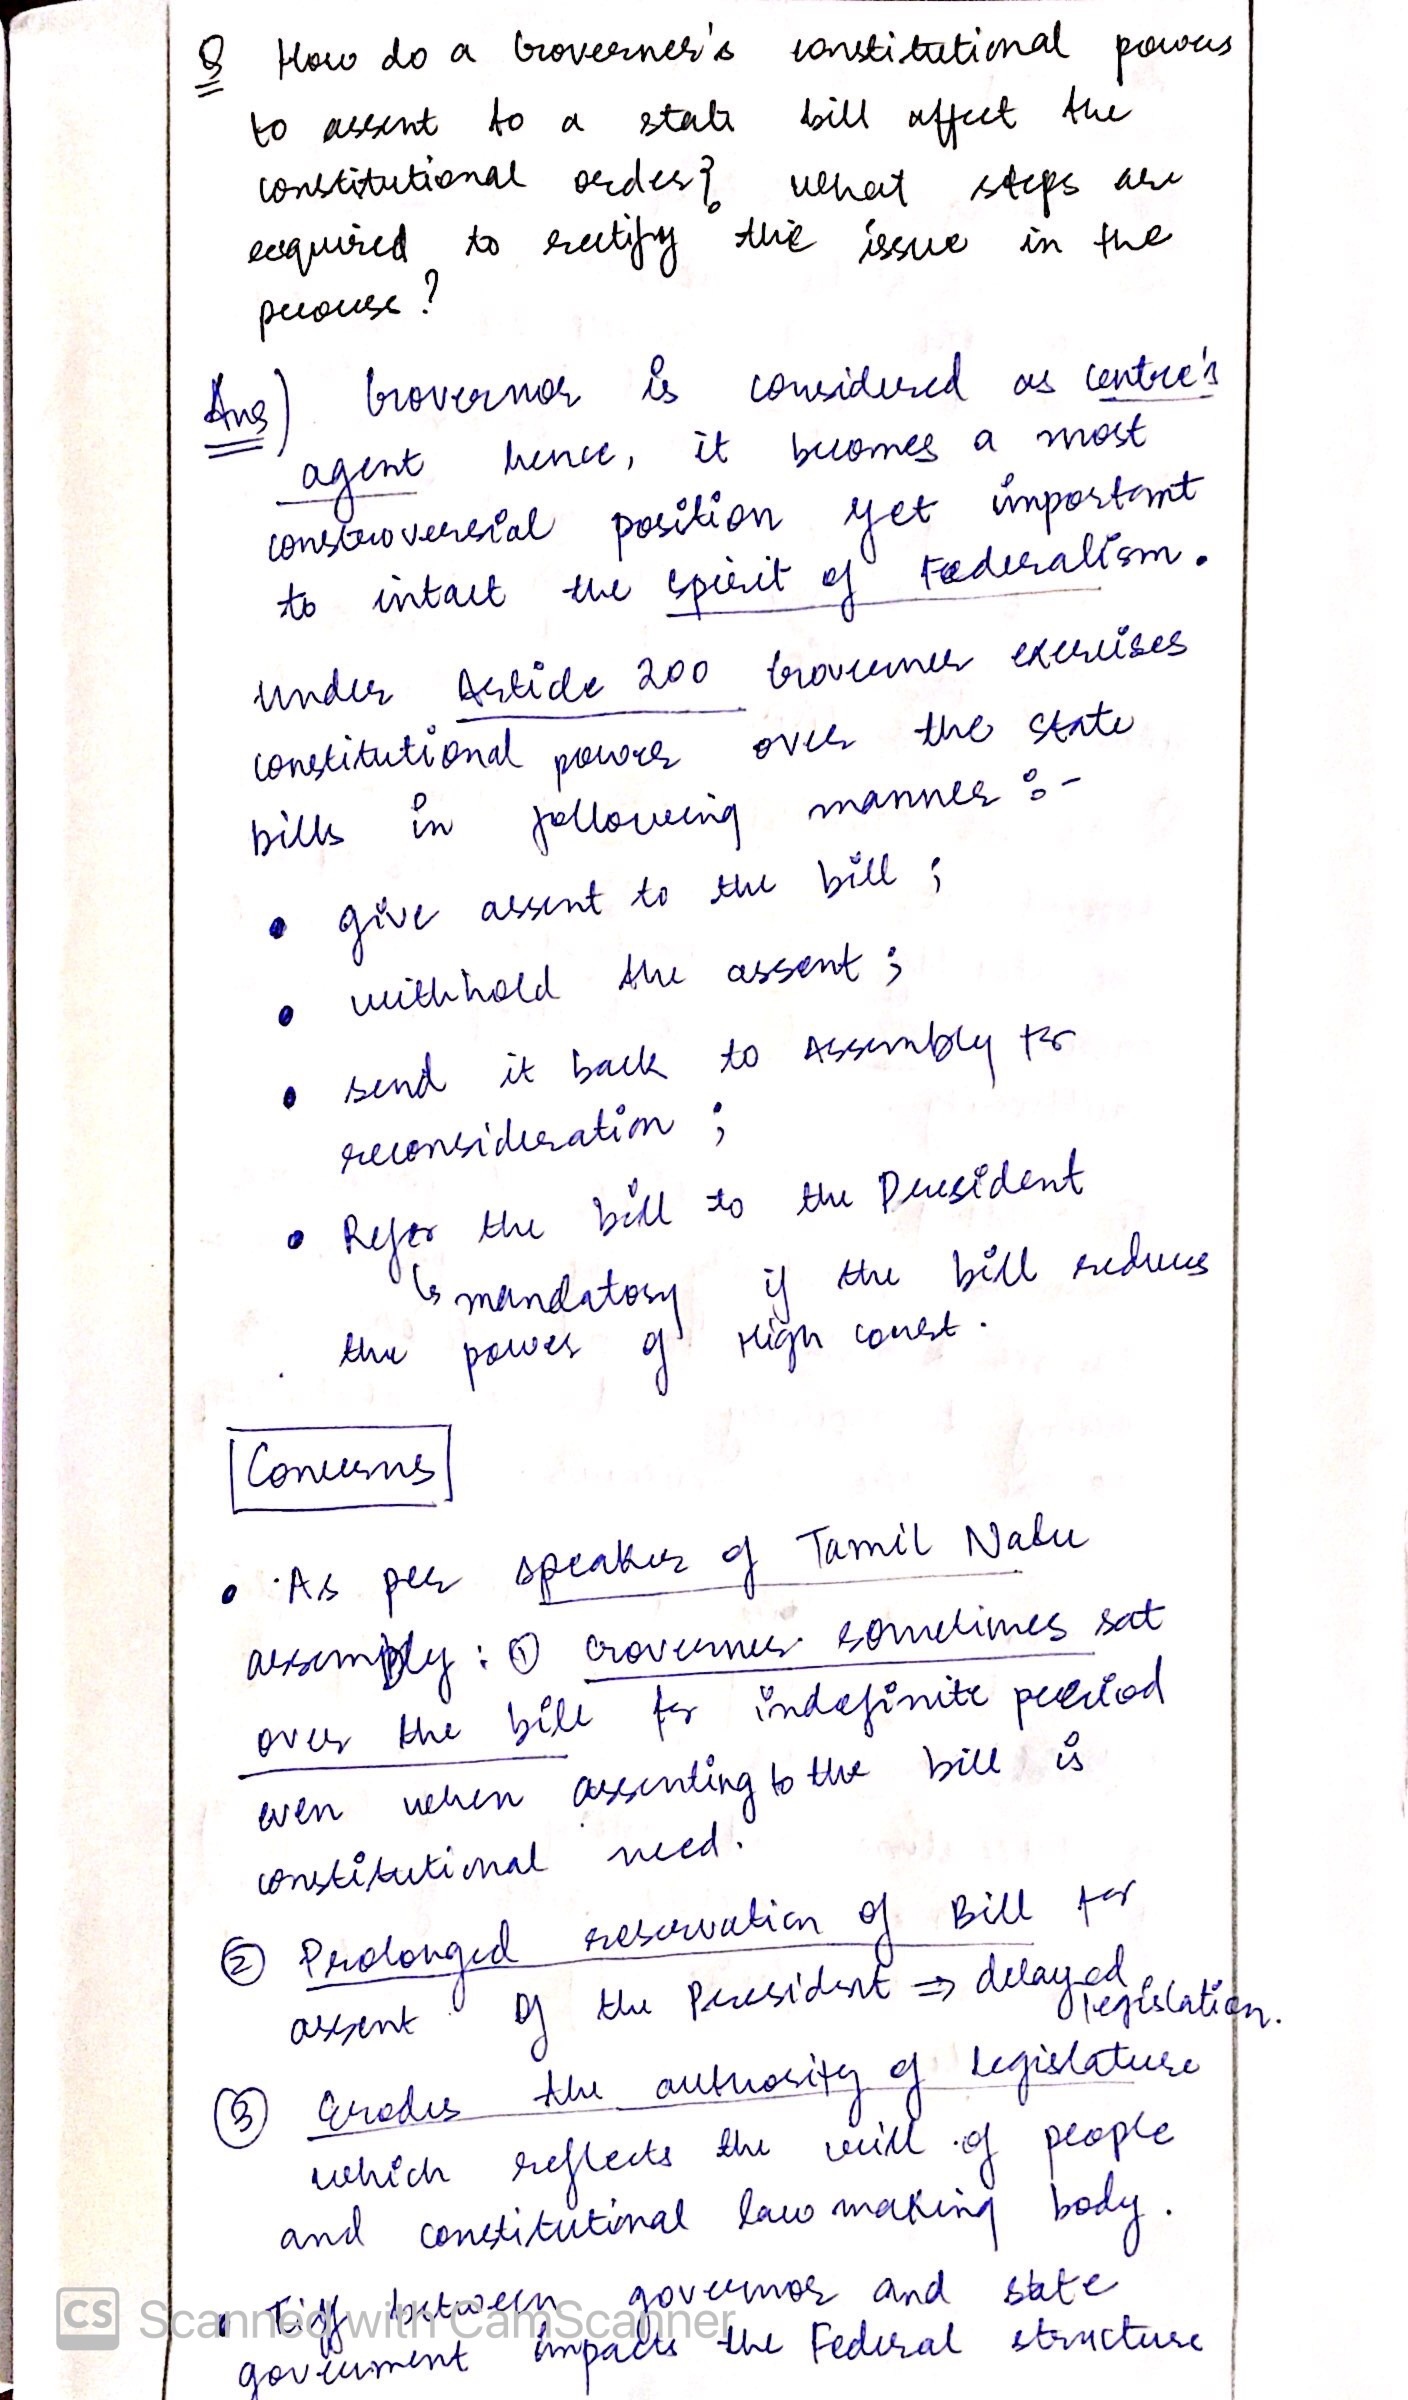 Q How do a Governer's constitutional powers
to assent to a state bill affect the
constitutional order? What steps are
required to rectify the issue in the
process?
Ans) Governor is considered as centre's
agent hence, it becomes a most
constroversial position yet important
to intact the spirit of Federalism.
Under Article 200 Governer exercises
constitutional power over the state
bills in following manner :-
• give assent to the bill ;
• withhold the assent ;
• send it back to Assembly for
reconsideration ;
• Refer the bill to the President
↳ mandatory if the bill reduces
the power of High court.
Concerns
• As per speaker of Tamil Nadu
assembly : ① Governer sometimes sat
over the bill for indefinite period
even when assenting to the bill is
constitutional need.
② Prolonged reservation of Bill for
assent of the President ⇒ delayed
legislation.
③ Erodes the authority of Legislature
which reflects the will of people
and constitutional law making body.
• Tiff between governor and state
government impacts the Federal structure
CS Scanned with CamScanner